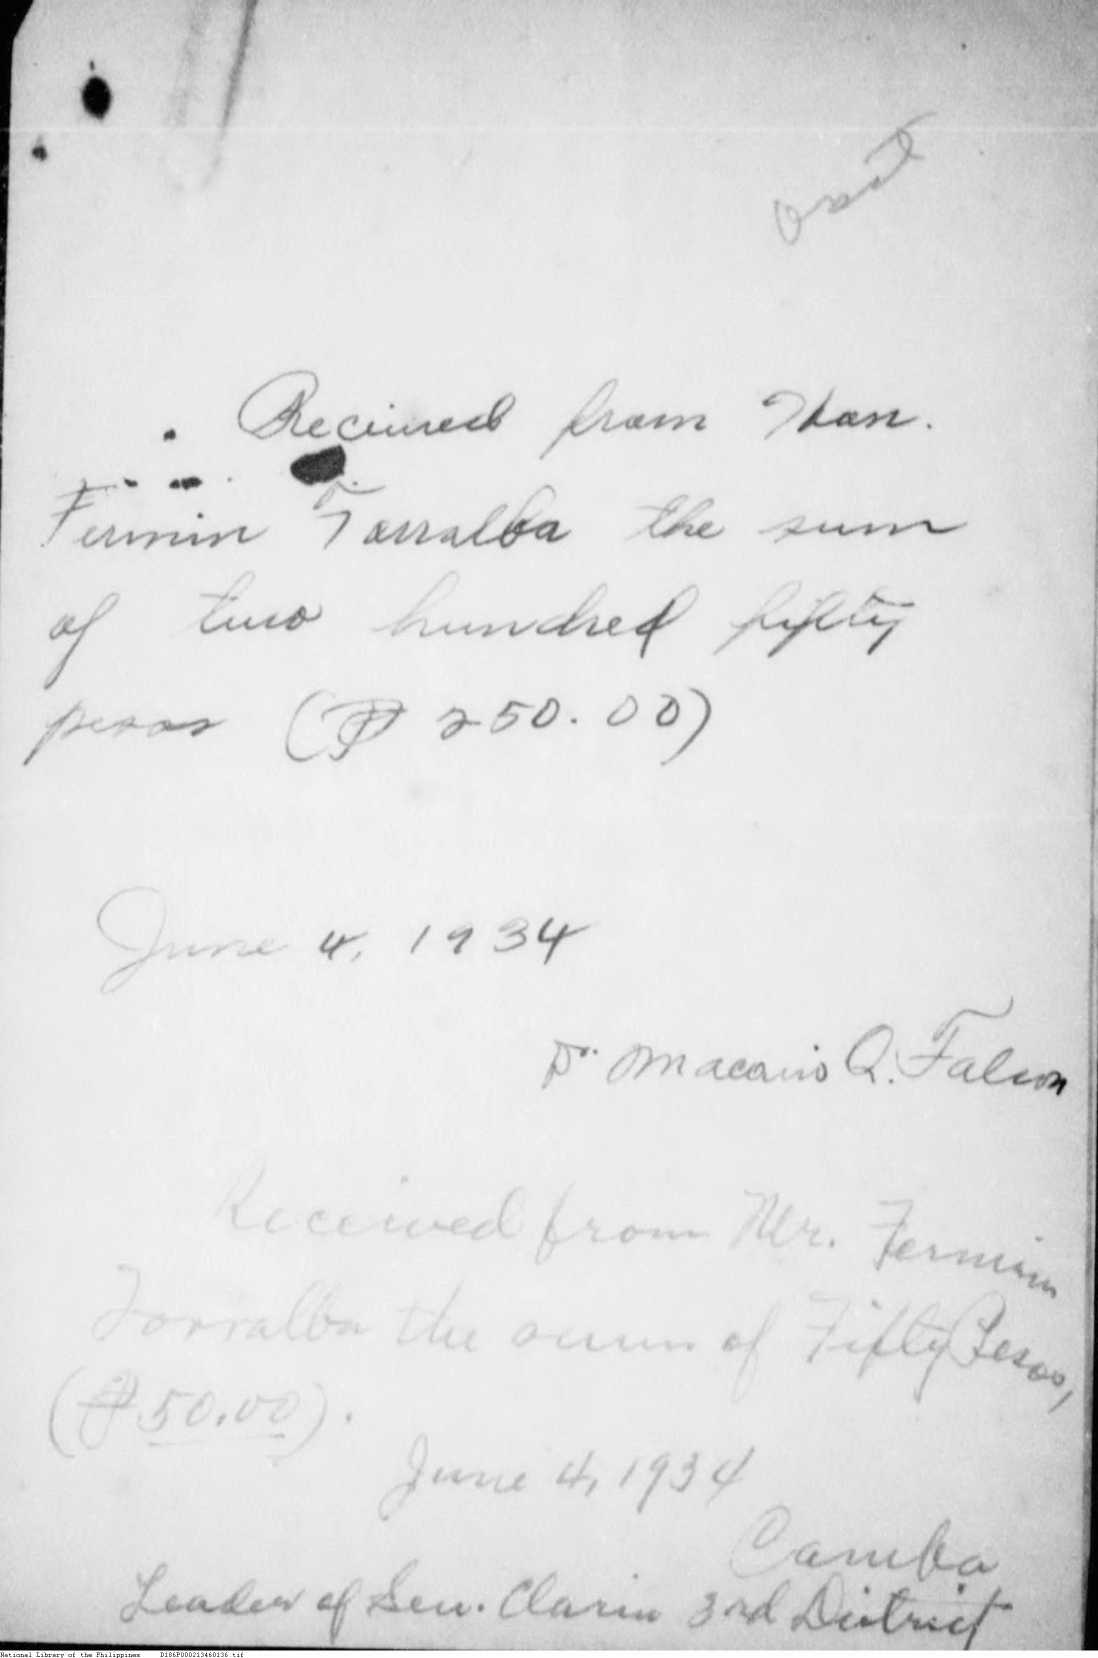 Received from Hon.
Fermin Torralba the sum
of two hundred fifty
pesos (₱ 250.00)
June 4, 1934
Dr. Macario Q. Falcon
Received from Mr. Fermin
Torralba the sum of Fifty Pesos,
(₱50.00).
June 4, 1934
Camba
Leader of Sen. Clarin 3rd District
National Library of the Philippines D186P000213460136.tif